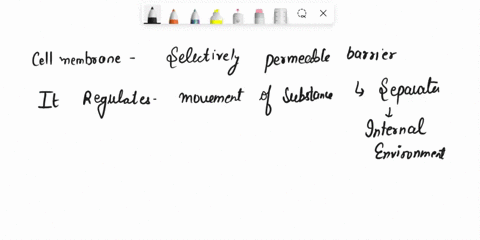 Cell membrane - Selectively permeable barrier
It Regulates - movement of Substance ↳ Separates
↓
Internal
Environment